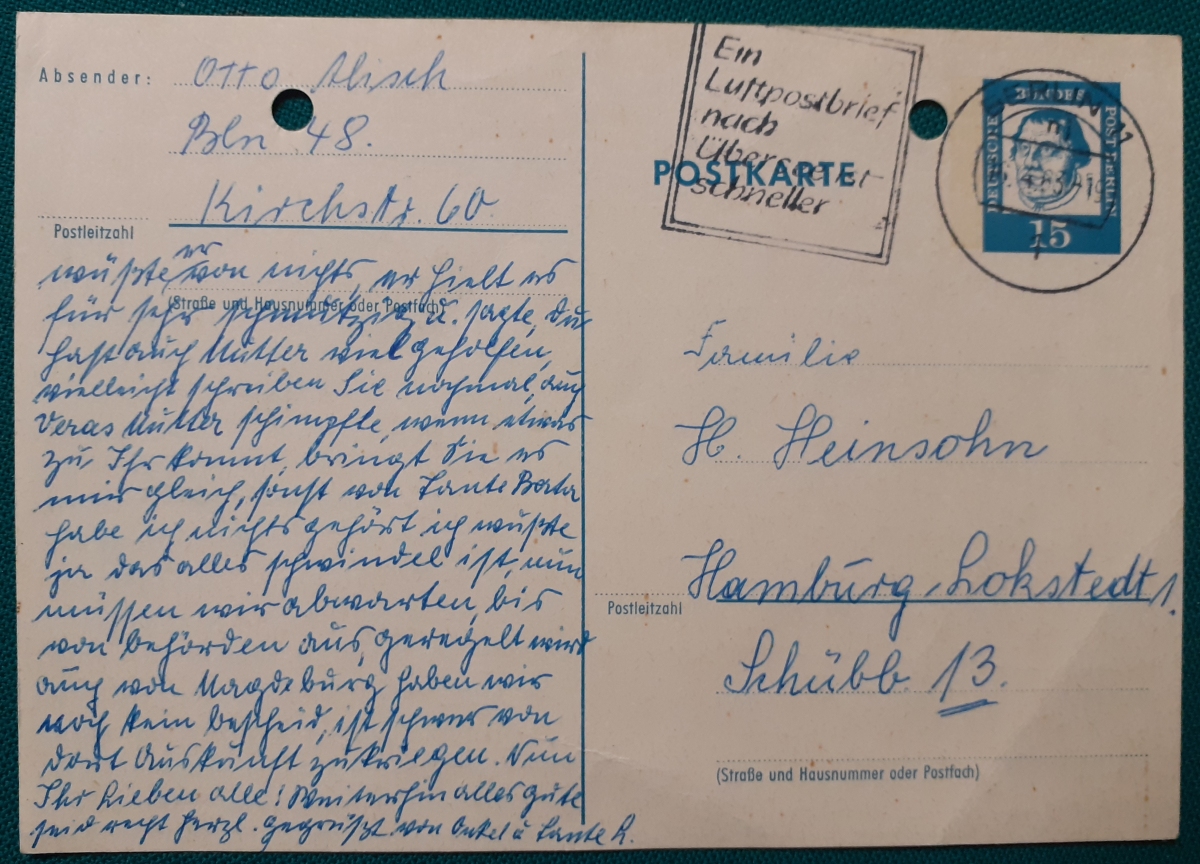 Absender: Otto Alisch
Bln 48.
Kirchstr. 60
Postleitzahl
(Straße und Hausnummer oder Postfach)
er
wüßte von nichts, er hielt es
für sehr schmutzig u. sagte, Du
hast auch Mutter viel geholfen,
vielleicht schreiben Sie nochmal, auch
Veras Mutter schimpfte, wenn etwas
zu Ihr kommt, bringt Sie es
mir gleich, sonst von Tante Berta
habe ich nichts gehört ich wüßte
ja das alles schwindel ist, nun
müssen wir abwarten, bis
von behörden aus, geregelt wird
auch von Magdeburg haben wir
noch kein bescheid, ist schwer von
dort Auskunft zu kriegen. Nun
Ihr Lieben alle! Weiterhin alles gute
seid recht herzl. gegrüßt von Onkel u Tante L.
Ein
Luftpostbrief
nach
Übersee ist
schneller
POSTKARTE
BERLIN 11
DEUTSCHE
BUNDES
POST BERLIN
15
Familie
H. Heinsohn
Hamburg-Lokstedt 1.
Postleitzahl
Schübb. 13.
(Straße und Hausnummer oder Postfach)